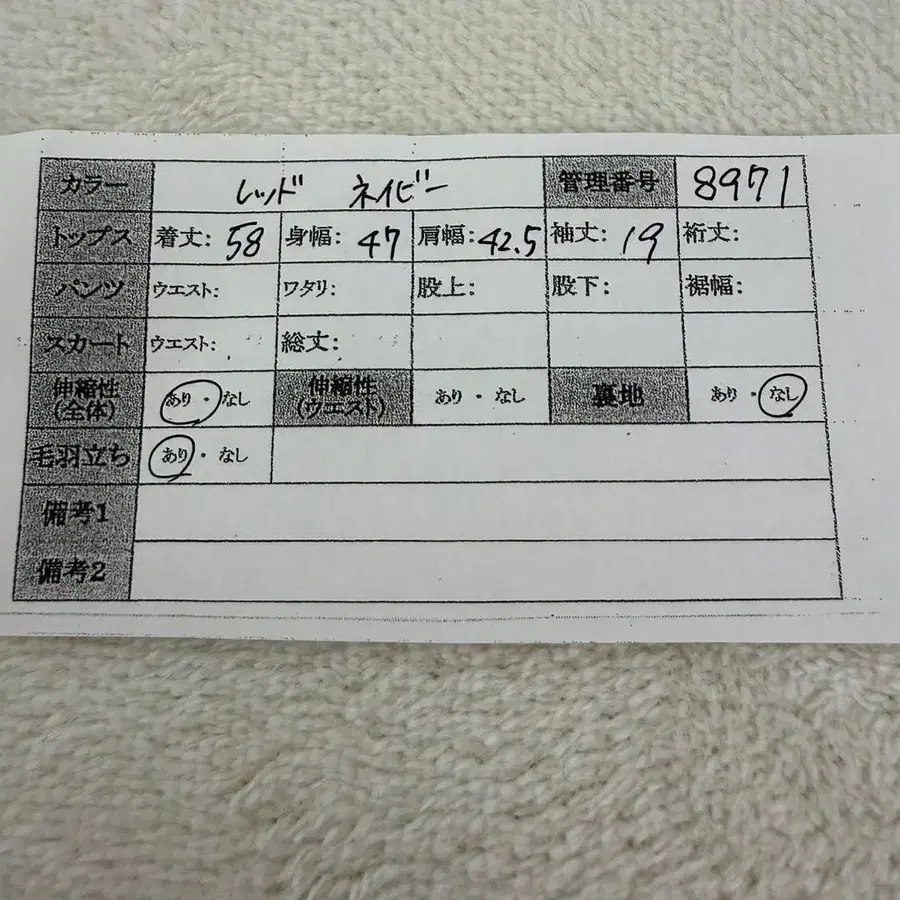 カラー レッド ネイビー 管理番号 8971
トップス 着丈: 58 身幅: 47 肩幅: 42.5 袖丈: 19 裄丈:
パンツ ウエスト: ワタリ: 股上: 股下: 裾幅:
スカート ウエスト: 総丈:
伸縮性(全体) あり・なし 伸縮性(ウエスト) あり・なし 裏地 あり・なし
毛羽立ち あり・なし
備考1
備考2